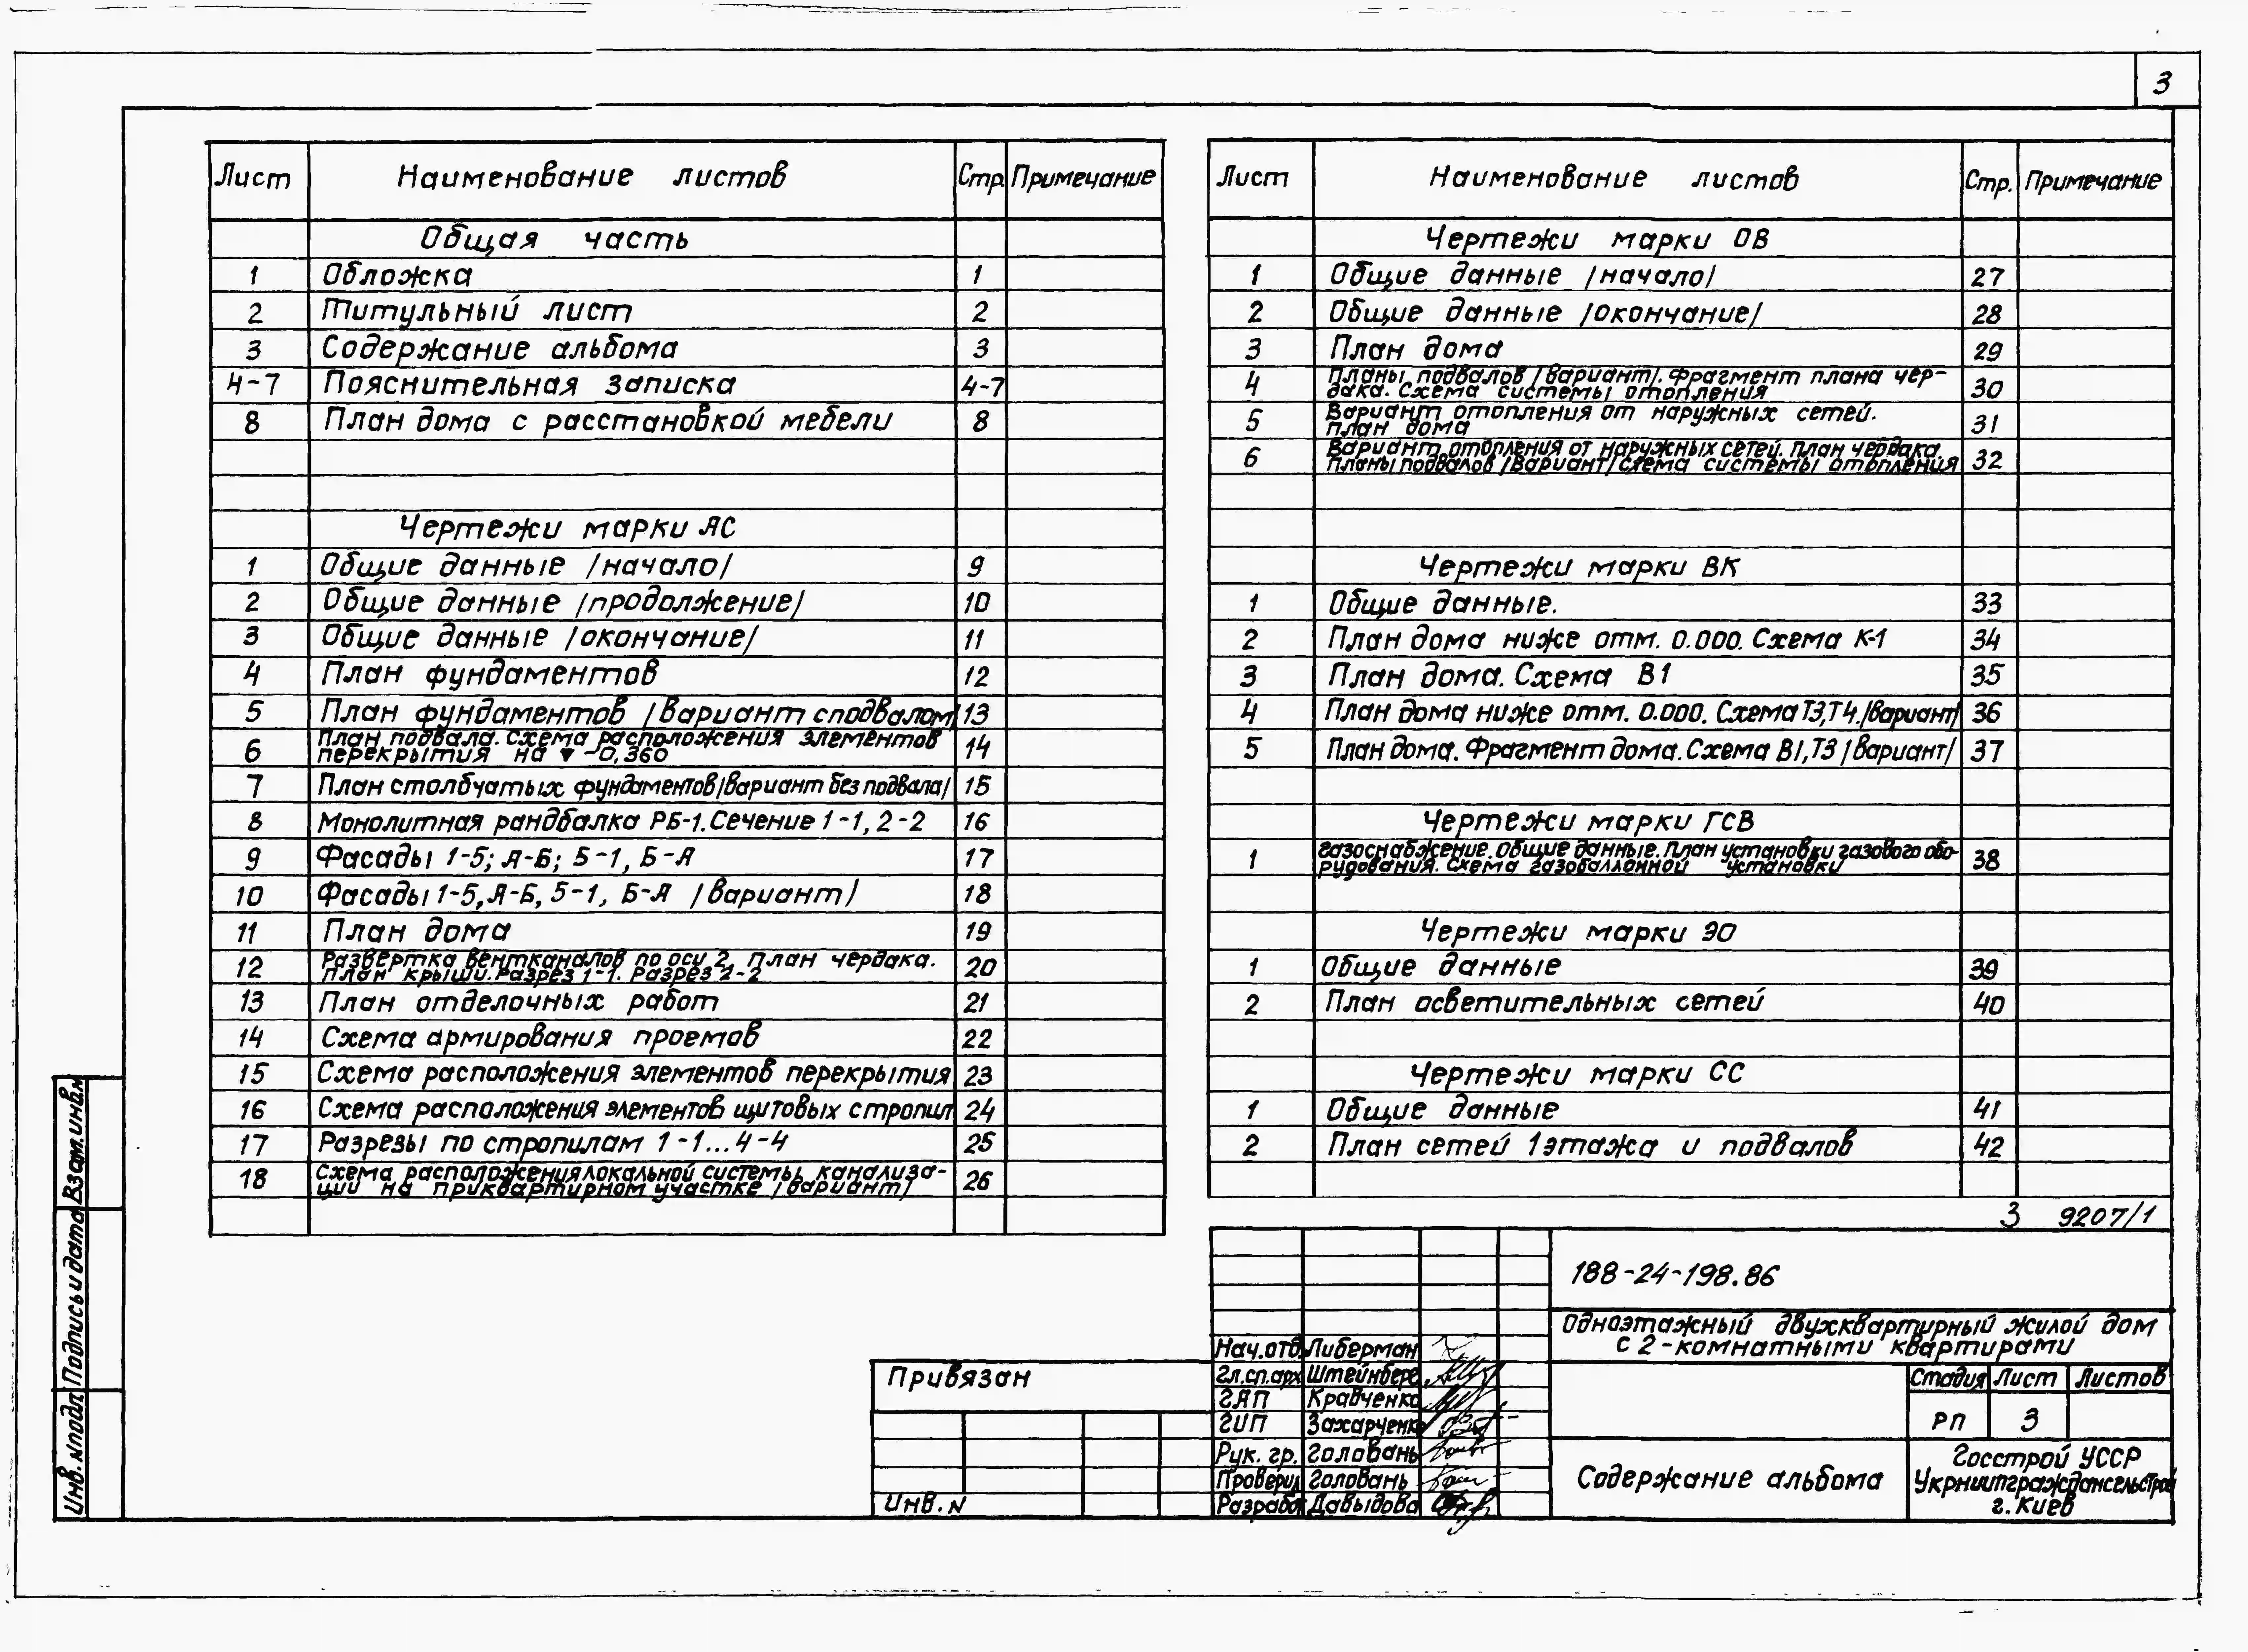 3
Лист Наименование листов Стр. Примечание
Общая часть
1 Обложка 1
2 Титульный лист 2
3 Содержание альбома 3
4-7 Пояснительная записка 4-7
8 План дома с расстановкой мебели 8
Чертежи марки АС
1 Общие данные /начало/ 9
2 Общие данные /продолжение/ 10
3 Общие данные /окончание/ 11
4 План фундаментов 12
5 План фундаментов /вариант с подвалом/ 13
6 План подвала. Схема расположения элементов
перекрытия на ▼ -0,360 14
7 План столбчатых фундаментов /вариант без подвала/ 15
8 Монолитная рандбалка РБ-1. Сечение 1-1, 2-2 16
9 Фасады 1-5; А-Б; 5-1, Б-А 17
10 Фасады 1-5, А-Б, 5-1, Б-А /вариант/ 18
11 План дома 19
12 Развертка вентканалов по оси 2, план чердака.
План крыши. Разрез 1-1. Разрез 2-2 20
13 План отделочных работ 21
14 Схема армирования проемов 22
15 Схема расположения элементов перекрытия 23
16 Схема расположения элементов щитовых стропил 24
17 Разрезы по стропилам 1-1...4-4 25
18 Схема расположения локальной системы канализа-
ции на приквартирном участке /вариант/ 26
Лист Наименование листов Стр. Примечание
Чертежи марки ОВ
1 Общие данные /начало/ 27
2 Общие данные /окончание/ 28
3 План дома 29
4 Планы подвалов /вариант/. Фрагмент плана чер-
дака. Схема системы отопления 30
5 Вариант отопления от наружных сетей.
план дома 31
6 Вариант отопления от наружных сетей. План чердака.
Планы подвалов /вариант/ схема системы отопления 32
Чертежи марки ВК
1 Общие данные. 33
2 План дома ниже отм. 0.000. Схема К-1 34
3 План дома. Схема В1 35
4 План дома ниже отм. 0.000. Схема Т3,Т4./вариант/ 36
5 План дома. Фрагмент дома. Схема В1,Т3 /вариант/ 37
Чертежи марки ГСВ
1 Газоснабжение. Общие данные. План установки газового обо-
рудования. Схема газобаллонной установки 38
Чертежи марки ЭО
1 Общие данные 39
2 План осветительных сетей 40
Чертежи марки СС
1 Общие данные 41
2 План сетей 1 этажа и подвалов 42
3 9207/1
188-24-198.86
Одноэтажный двухквартирный жилой дом
с 2-комнатными квартирами
Нач.отд. Либерман
Гл.сп.арх Штейнберг
ГАП Кравченко
ГИП Захарченко
Рук. гр. Головань
Проверил Головань
Разраб. Давыдова
Стадия Лист Листов
РП 3
Содержание альбома
Госстрой УССР
Укрниипграждансельстрой
г. Киев
Привязан
Инв. N
Взам.инв.N
Подпись и дата
Инв. N подл